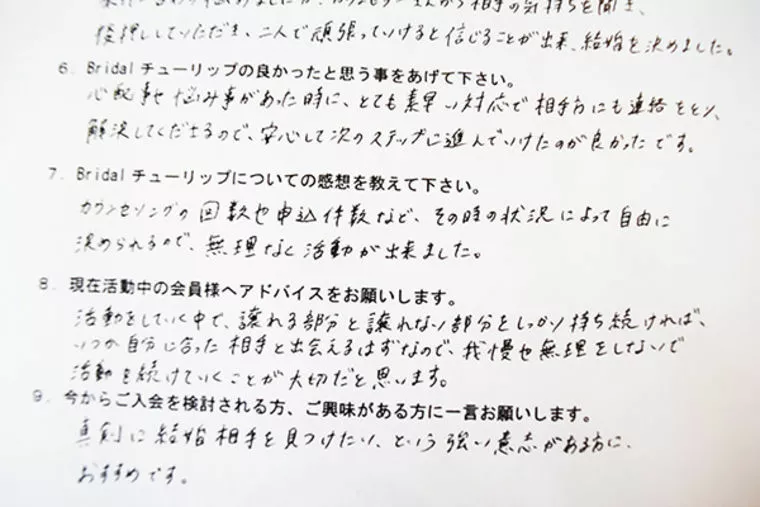 相手の気持ちを聞き、
後押ししていただき、二人で頑張っていけると信じることが出来、結婚を決めました。
6. Bridalチューリップの良かったと思う事をあげて下さい。
心配事や悩み事があった時に、とても素早い対応で相手方にも連絡をとり、
解決してくださるので、安心して次のステップに進んでいけたのが良かったです。
7. Bridalチューリップについての感想を教えて下さい。
カウンセリングの回数や申込件数など、その時の状況によって自由に
決められるので、無理なく活動が出来ました。
8. 現在活動中の会員様へアドバイスをお願いします。
活動をしていく中で、譲れる部分と譲れない部分をしっかり持ち続ければ、
いつか自分に合った相手と出会えるはずなので、我慢や無理をしないで
活動を続けていくことが大切だと思います。
9. 今からご入会を検討される方、ご興味がある方に一言お願いします。
真剣に結婚相手を見つけたい、という強い意志がある方に、
おすすめです。